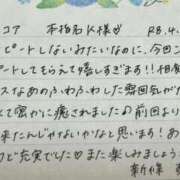 コア 本指名K様♥ R8.4.
ピートしないみたいなのに、今回こ
ピートしてもらえて嬉しすぎます!!相
なゆめふわふわした雰囲気が
て密かに癒されました♡前回より
来たんじゃないかなと思います!あ
ひと充実でした♡また楽しみましょう
新様